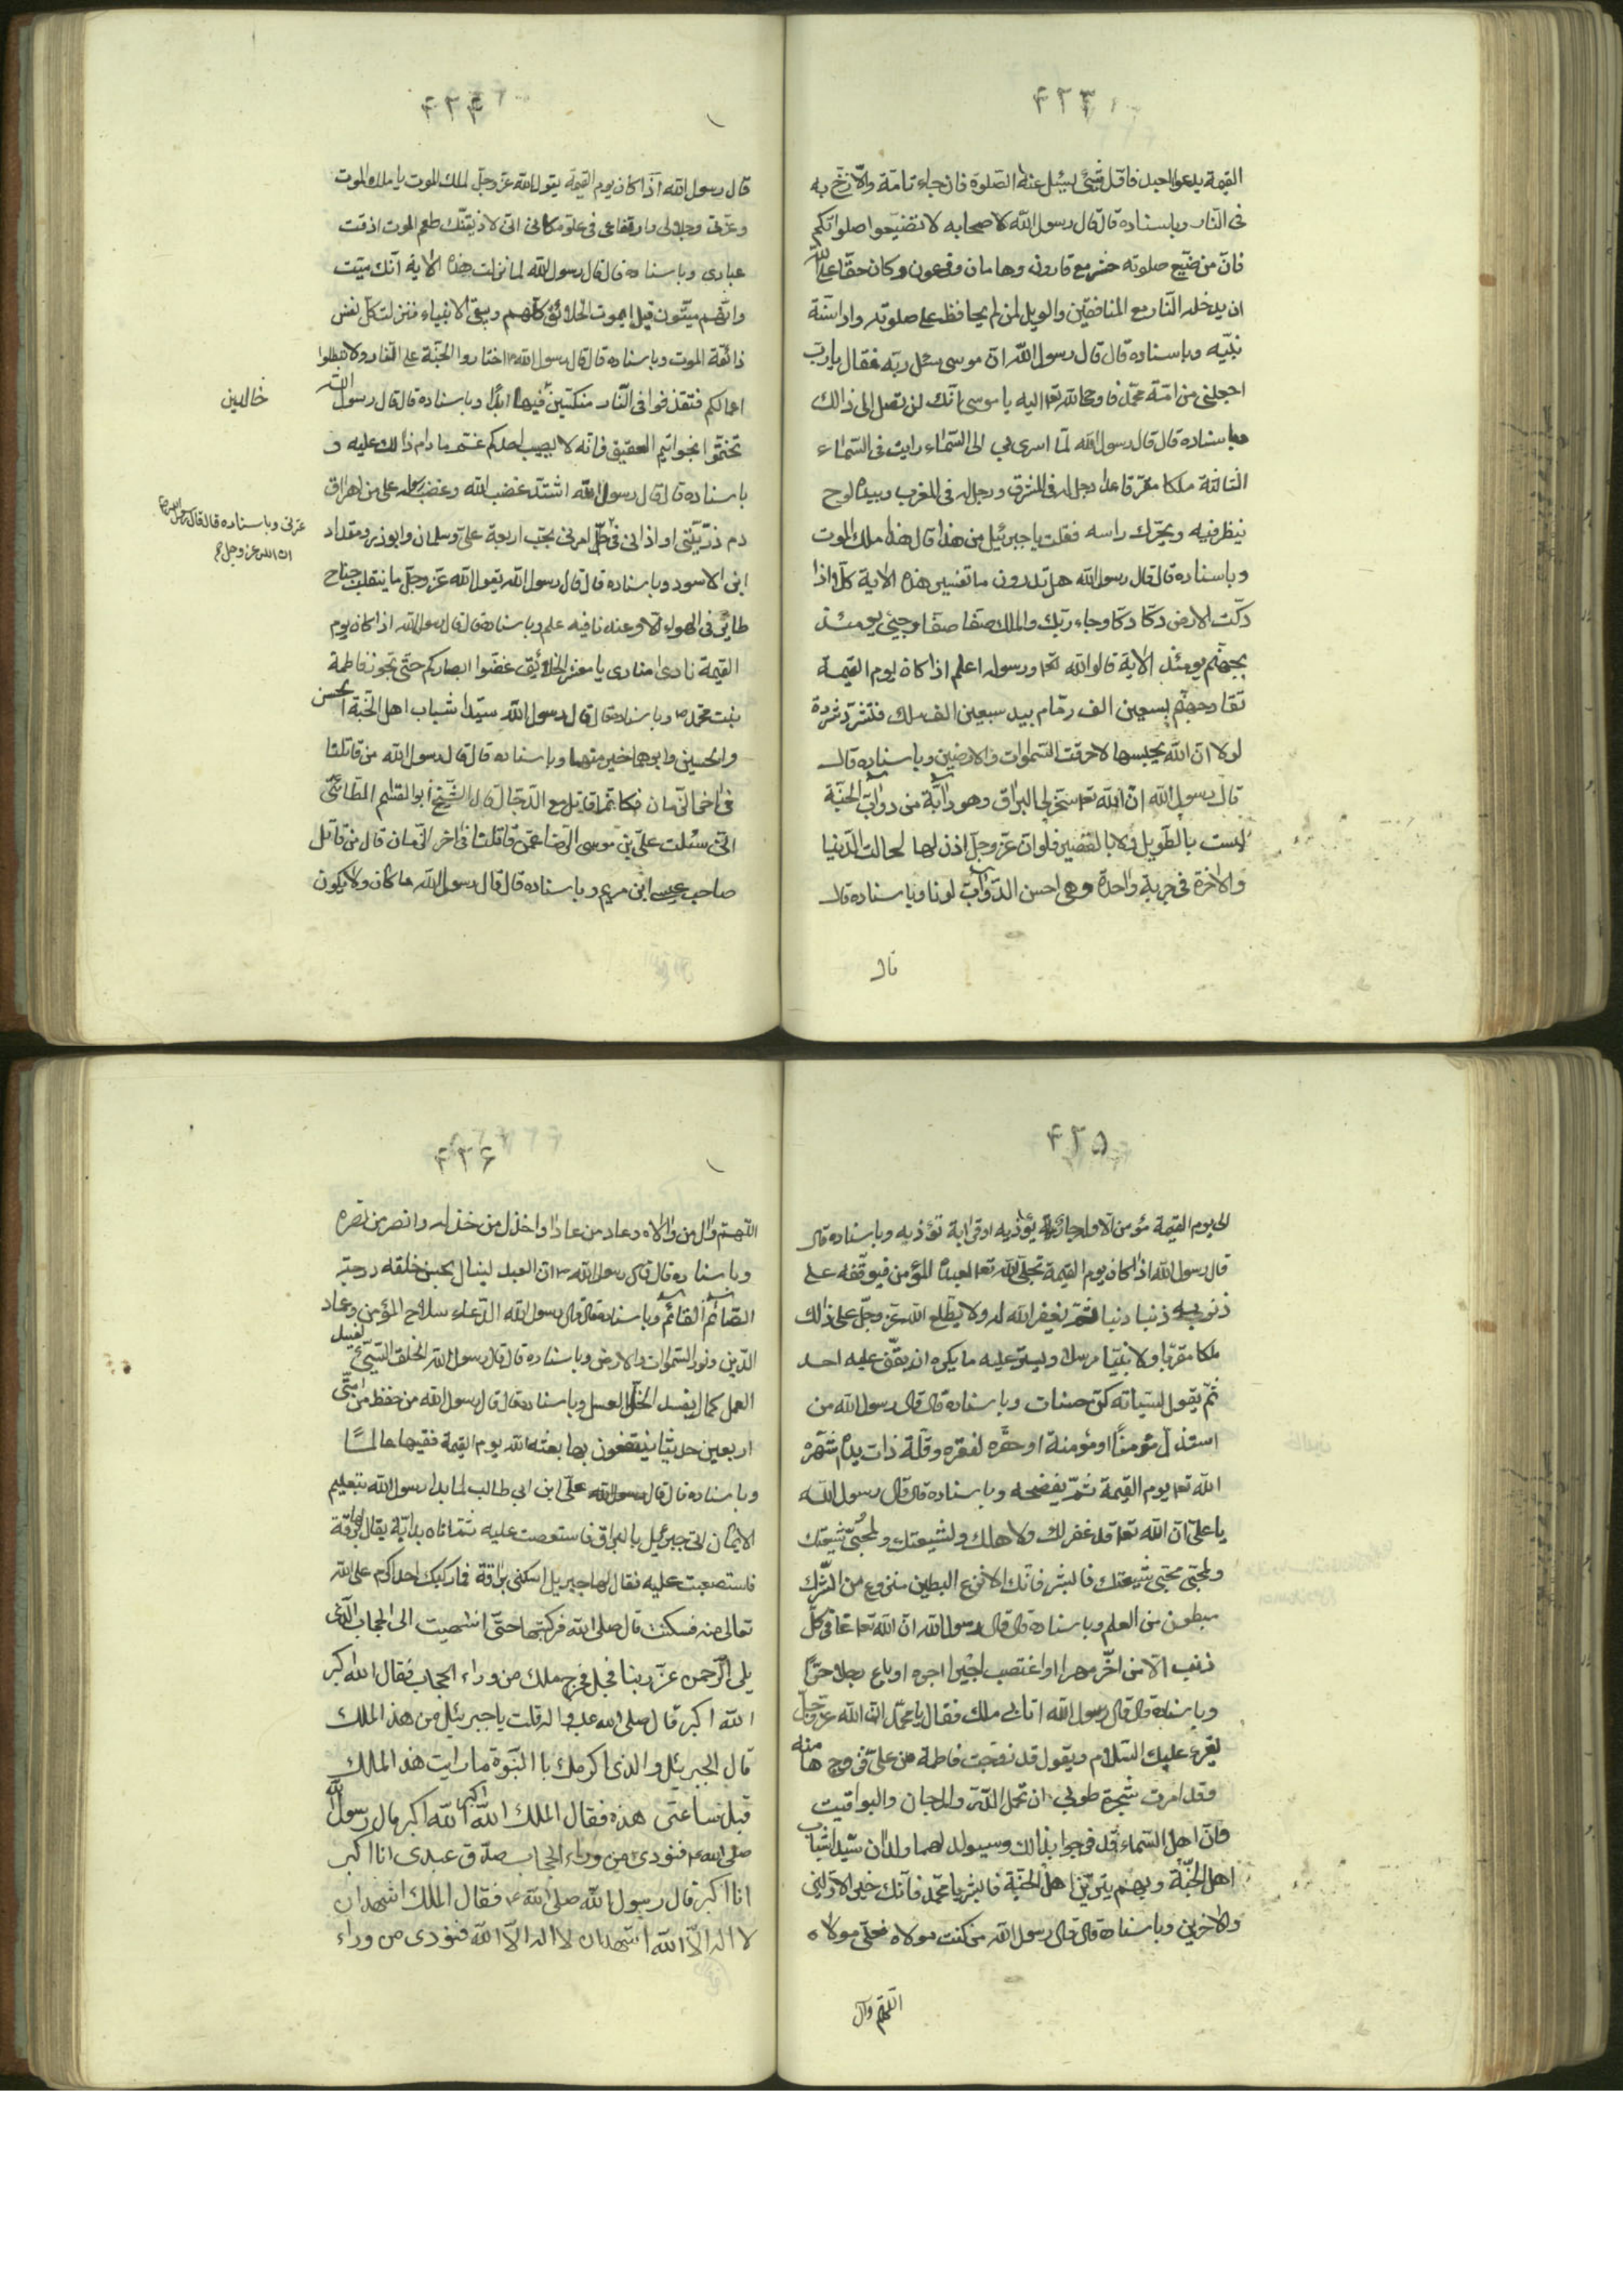 ۴۲۳
القيمة يدعوا لعبد فاقل شيئ ليسئل عنه الصلوة فان جاء تامة والا زخ به
فى النار وباسناده قال قال رسول الله لاصحابه لا تضيعوا صلواتكم
فان من ضيع صلوته حشر مع قارون وهامان وفرعون وكان حقا على الله
ان يدخله النار مع المنافقين والويل لمن لم يحافظ على صلوته واداء سنة
نبيه وباسناده قال قال رسول الله ان موسى سئل ربه فقال يا رب
اجعلنى من امة محمد فاوحى الله تعا اليه يا موسى انك لن تصل الى ذالك
وباسناده قال قال رسول الله لما اسرى بى الى السماء رايت فى السماء
الثالثة ملكا قاعدا رجل له فى المشرق ورجل له فى المغرب وبيده لوح
ينظر فيه ويحرك راسه فقلت يا جبرئيل من هذا قال هذا ملك الموت
وباسناده قال قال رسول الله هل تدرون ما تفسير هذه الاية كلا اذا
دكت الارض دكا دكا وجاء ربك والملك صفا صفا وجيئ يومئذ
بجهنم يومئذ الاية قالوا الله تعا ورسوله اعلم اذا كان يوم القيمة
تقاد جهنم بسبعين الف زمام بيد سبعين الف ملك فتشرد شردة
لولا ان الله يحبسها لاحرقت السموات والارضين وباسناده قال
قال رسول الله ان الله تعا سخر لى البراق وهو دابة من دواب الجنة
ليست بالطويل ولا بالقصير فلو ان عز وجل اذن لها لجالت الدنيا
والاخرة فى جرية واحدة وهى احسن الدواب لونا وباسناده قال
قال
۴۲۴
قال رسول الله اذا كان يوم القيمة يقول الله عز وجل لملك الموت يا ملك الموت
وعزتى وجلالى وارتفاعى فى علو مكانى انى لاذيقنك طعم الموت اذقت
عبادى وباسناده قال قال رسول الله لما نزلت هذه الاية انك ميت
وانهم ميتون قيل ايموت الخلائق كلهم ويبقى الانبياء فنزلت كل نفس
ذائقة الموت وباسناده قال قال رسول الله اختاروا الجنة على النار ولا تبطلوا
اعمالكم فتقذفوا فى النار منكسين فيها ابدا وباسناده قال قال رسول الله
خالدين
تختموا بخواتيم العقيق فانه لا يصيب احدكم غم ما دام ذالك عليه و
باسناده قال قال رسول الله اشتد غضب الله وغضب رسوله على من اهراق
دم ذريتى او اذانى فى امرنى بحب اربعة على وسلمان وابوذر ومقداد
عترتى وباسناده قال قال رسول الله
ان الله عز وجل
ابن الاسود وباسناده قال قال رسول الله يقول الله عز وجل ما ينقلب جناح
طائر فى الهواء الا وعندنا فيه علم وباسناده قال قال رسول الله اذا كان يوم
القيمة نادى منادى يا معشر الخلائق غضوا ابصاركم حتى تجوز فاطمة
بنت محمد ص وباسناده قال قال رسول الله سيدا شباب اهل الجنة الحسن
والحسين وابوهما خير منهما وباسناده قال قال رسول الله من قاتلنا
فى اخر الزمان فكانما قاتل مع الدجال قال الشيخ ابو القاسم الطائى
انى سئلت على بن موسى الرضا عمن قاتلنا فى اخر الزمان قال من قاتل
صاحب عيسى ابن مريم وباسناده قال قال رسول الله ما كان ولا يكون
۴۲۵
الى يوم القيمة مؤمن الا وله جار يؤذيه او قرابة تؤذيه وباسناده قال
قال رسول الله اذا كان يوم القيمة تجلى الله تعا لعبده المؤمن فيوقفه على
ذنوبه ذنبا ذنبا ثم يغفر الله له ولا يطلع الله عز وجل على ذالك
ملكا مقربا ولا نبيا مرسلا ويستر عليه ما يكره ان يقف عليه احد
ثم يقول لسيئاته كن حسنات وباسناده قال قال رسول الله من
استذل مؤمنا او مؤمنة او حقره لفقره وقلة ذات يده شهره
الله تعا يوم القيمة ثم يفضحه وباسناده قال قال رسول الله
يا على ان الله تعا قد غفر لك ولاهلك ولشيعتك ولمحبى شيعتك
ولمحبى محبى شيعتك فابشر فانك الانزع البطين منزوع من الشرك
مبطون من العلم وباسناده قال قال رسول الله ان الله تعا غافر كل
ذنب الا من اخر مهرا او اغتصب اجيرا اجره او باع رجلا حرا
وباسناده قال قال رسول الله اتانى ملك فقال يا محمد ان الله عز وجل
يقرء عليك السلام ويقول قد زوجت فاطمة من على فزوجها منه
وقد امرت شجرة طوبى ان تحمل الدر والمرجان واليواقيت
فان اهل السماء قد فرحوا بذالك وسيولد لهما ولدان سيدا شباب
اهل الجنة وبهم يتزين اهل الجنة فابشر يا محمد فانك خير الاولين
والاخرين وباسناده قال قال رسول الله من كنت مولاه فعلى مولاه
اللهم وال
۴۲۶
اللهم وال من والاه وعاد من عاداه واخذل من خذله وانصر من نصره
وباسناده قال قال رسول الله ان العبد لينال بحسن خلقه درجة
الصائم القائم وباسناده قال قال رسول الله الدعاء سلاح المؤمن وعماد
الدين ونور السموات والارض وباسناده قال قال رسول الله الخلق السيئ يفسد
العمل كما يفسد الخل العسل وباسناده قال قال رسول الله من حفظ من امتى
اربعين حديثا ينتفعون بها بعثه الله يوم القيمة فقيها عالما
وباسناده قال قال على ابن ابى طالب لما بدا رسول الله بتعليم
الاذان اتى جبرئيل بالبراق فاستعصت عليه ثم اتاه بدابة يقال لها برقة
فاستصعبت عليه فقال لها جبريل اسكنى براقة فما ركبك احد اكرم على الله
تعالى منه فسكنت قال صلى الله فركبتها حتى انتهيت الى الحجاب الذى
يلى الرحمن عز ربنا وجل فخرج ملك من وراء الحجاب فقال الله اكبر
الله اكبر قال صلى الله عليه واله قلت يا جبرئيل من هذا الملك
قال الجبرئيل والذى اكرمك باالنبوة ما رايت هذا الملك
قبل ساعتى هذه فقال الملك الله اكبر الله اكبر قال رسول الله
صلى الله فنودى من وراء الحجاب صدق عبدى انا اكبر
انا اكبر قال رسول الله صلى الله فقال الملك اشهد ان
لا اله الا الله اشهد ان لا اله الا الله فنودى من وراء